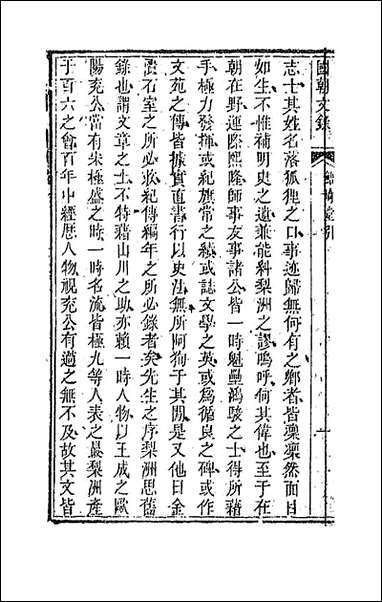 國朝文錄
鮚埼堂引
一
志士其姓名落狐狸之口事迹歸無何有之鄉者皆凜凜然面目
如生不惟補明史之遺兼能糾梨洲之謬嗚呼何其偉也至于在
朝在野運際熙隆師事友事諸公皆一時魁壘鴻駿之士得所藉
手極力發揮或紀旂常之績或誌文學之英或為循良之碑或作
文苑之傳皆據實直書行以史法無所阿狥于其閒是又他日金
匱石室之所必收紀傳編年之所必錄者矣先生之序梨洲思舊
錄也謂文章之士不特藉山川之助亦賴一時人物以玉成之歐
陽兖公當有宋極盛之時一時名流皆極九等人表之最梨洲產
于百六之會百年中經歷人物視兖公有過之無不及故其文皆